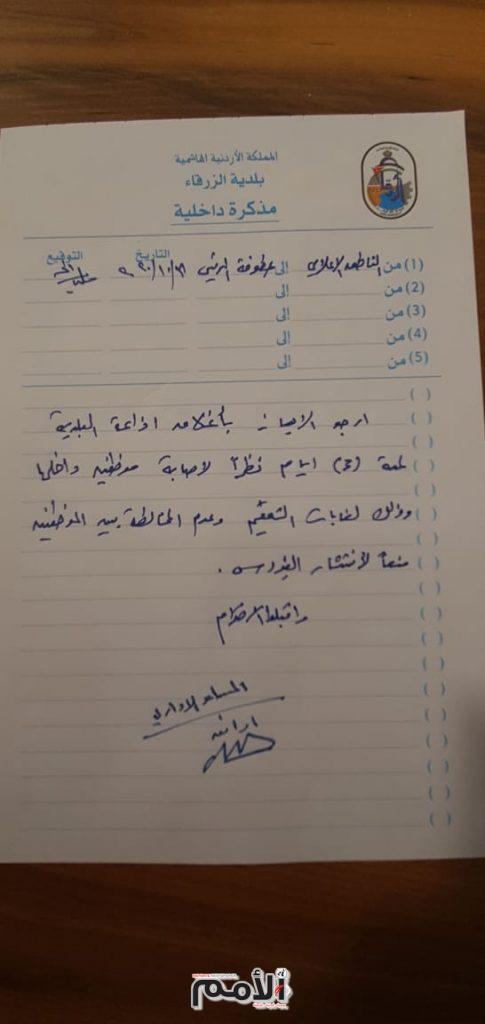 المملكة الأردنية الهاشمية
بلدية الزرقاء
مذكرة داخلية
التاريخ التوقيع
(1) من الناطق الاعلامي الى عطوفة الرئيس
(2) من الى
(3) من الى
(4) من الى
(5) من الى
ارجو الايعاز بأغلاق اذاعة البلدية
لمدة (3) ايام نظراً لاصابة موظفين داخلها
وذلك لغايات التعقيم وعدم المخالطة بين الموظفين
منعاً لأنتشار الفيروس .
واقبلوا الاحترام
المساعد الاداري
الأمم